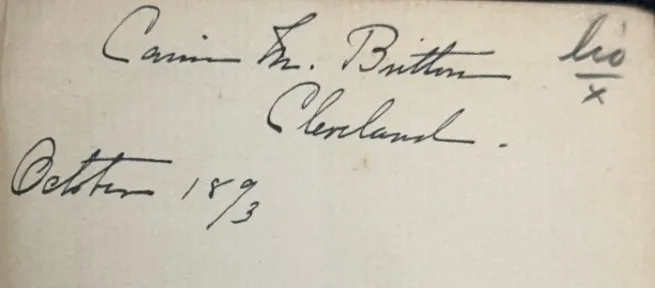 Carrie M. Britton
Cleveland.
October 1893